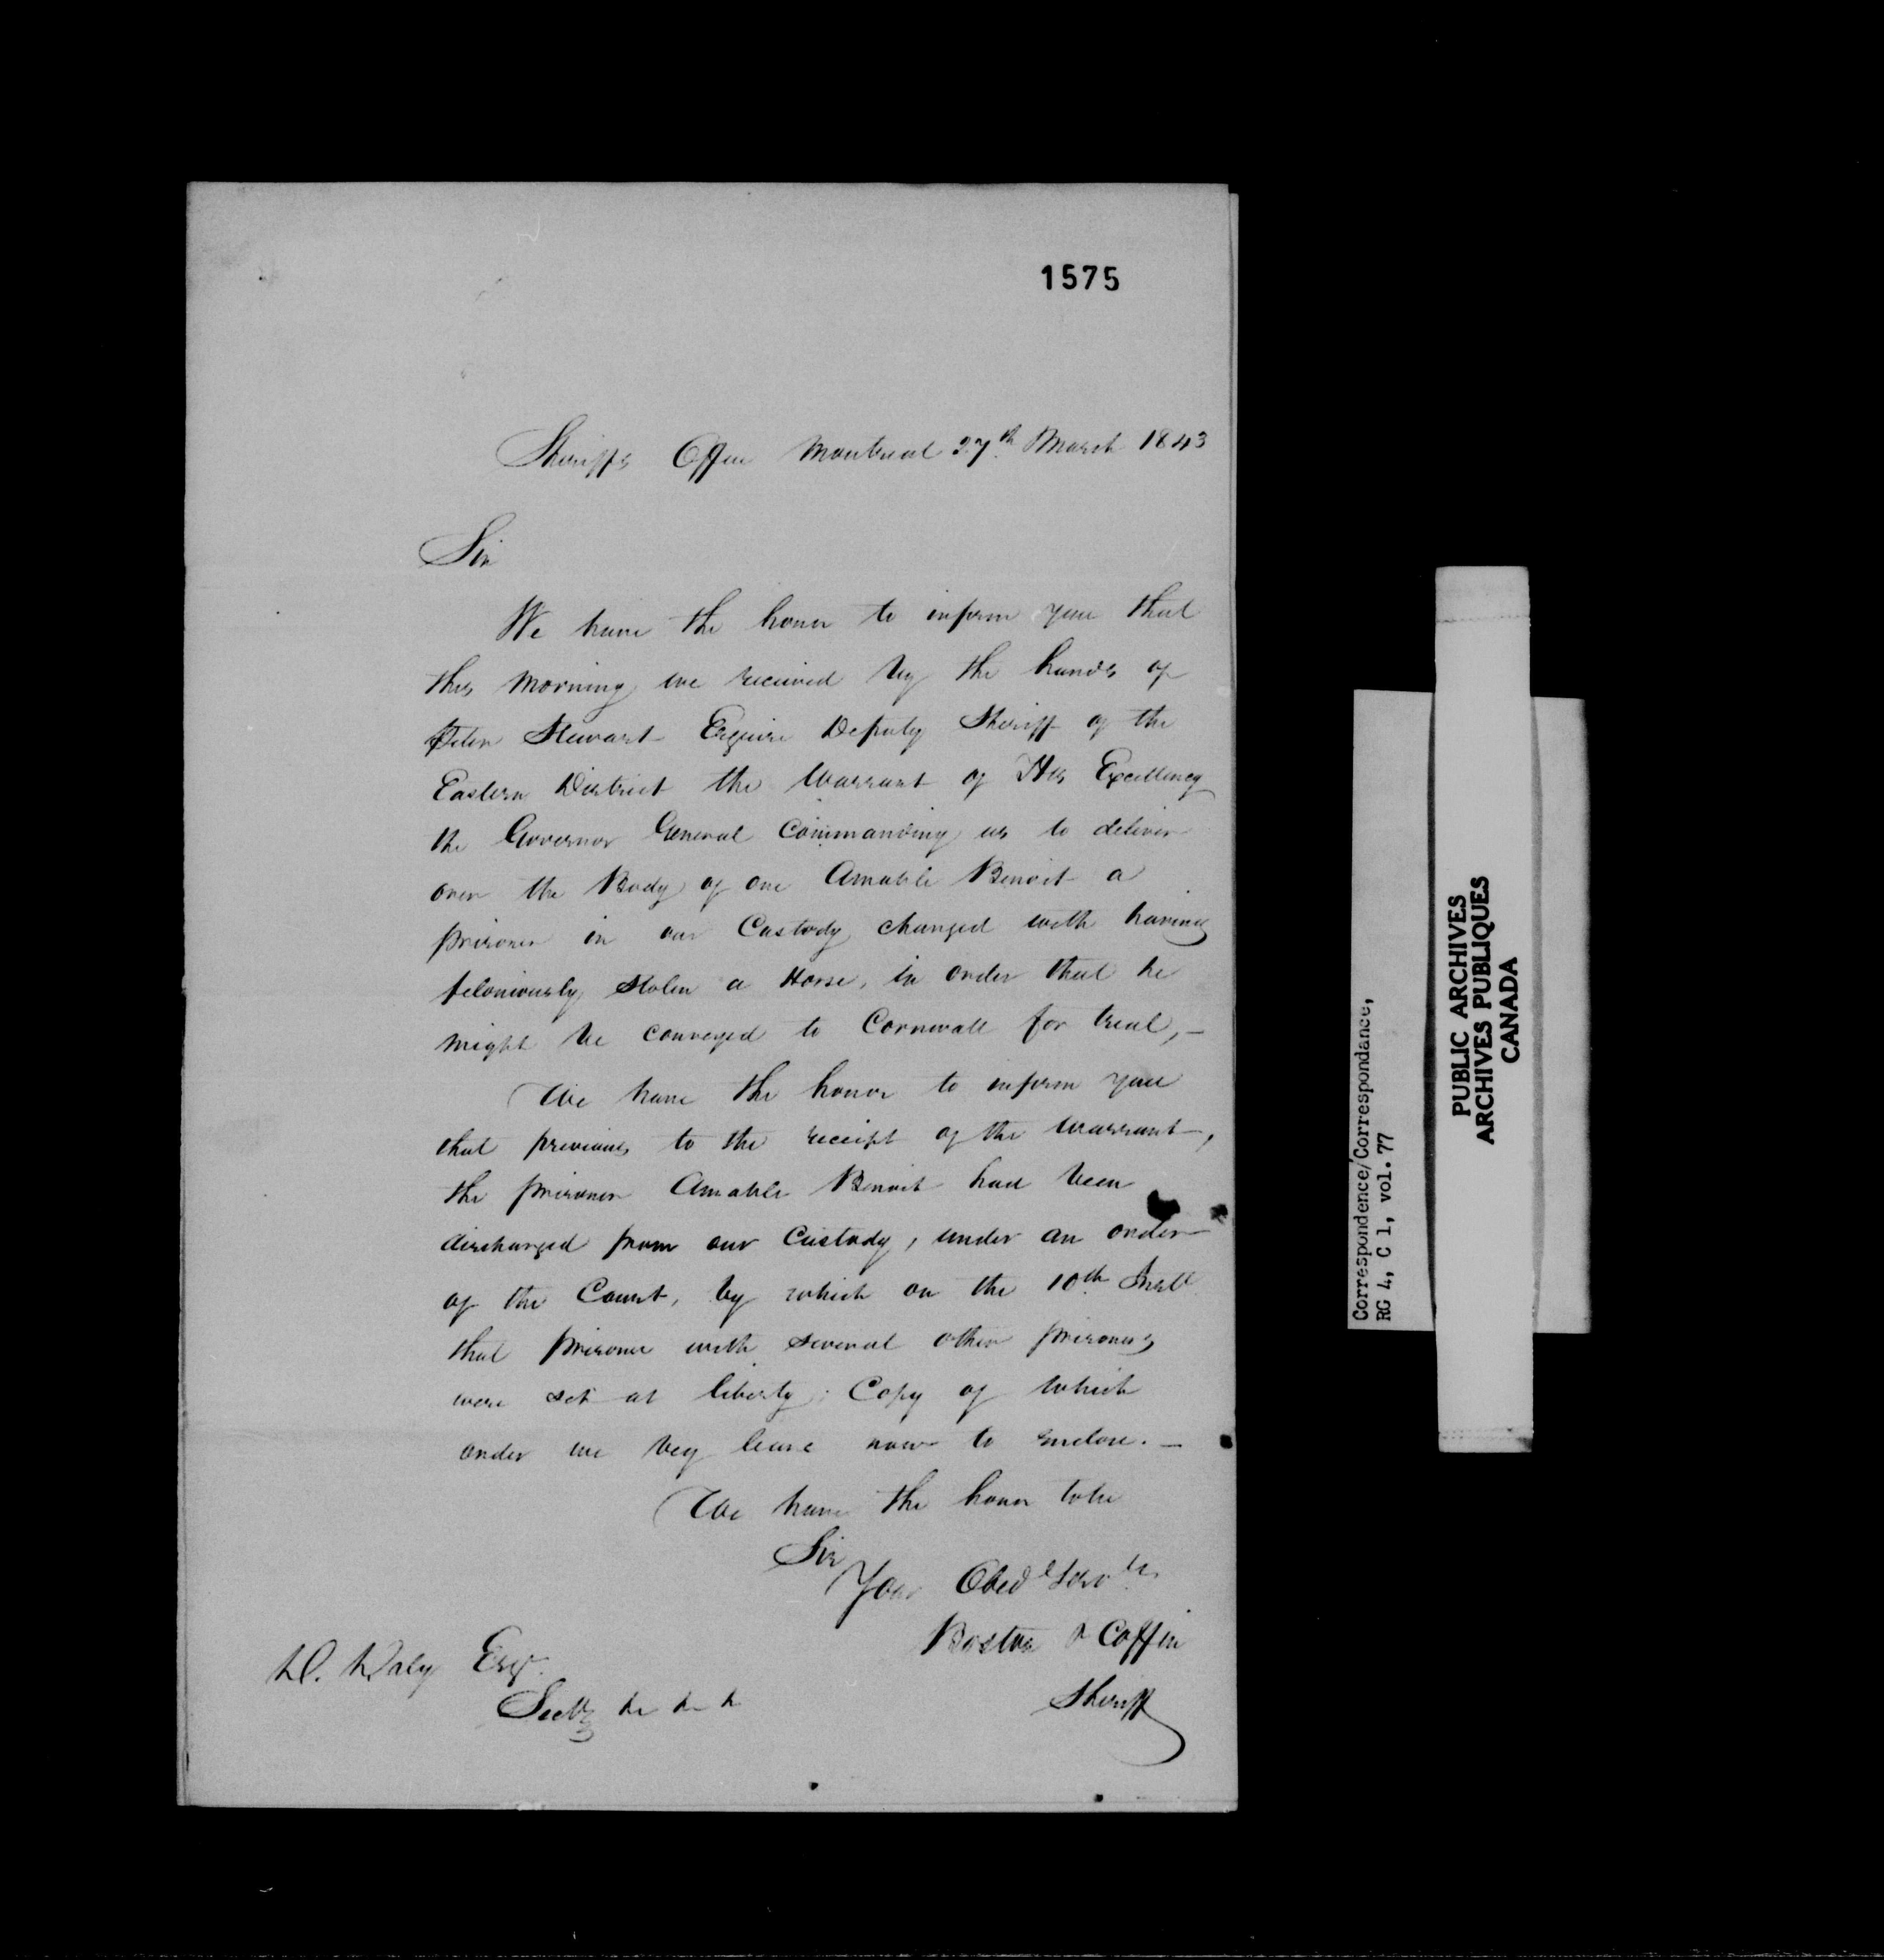 1575
Sheriffs Office Montreal 27th March 1843
Sir
We have the honor to inform you that
this morning we received by the hands of
Peter Stewart Esquire Deputy Sheriff of the
Eastern District the Warrant of His Excellency
the Governor General Commanding us to deliver
over the Body of one Amable Benoit a
prisoner in our Custody charged with having
feloniously stolen a Horse, in order that he
might be conveyed to Cornwall for trial,—
We have the honor to inform you
that previous to the receipt of the Warrant,
the prisoner Amable Benoit had been
discharged from our Custody, under an order
of the Court, by which on the 10th Inst
that prisoner with several other prisoners
were set at liberty; Copy of which
order we beg leave now to enclose.—
We have the honor to be
Sir
Your Obedt Servts
Boston & Coffin
Sheriff
D. Daly Esqr.
Secty & & &
Correspondence/Correspondance,
RG 4, C 1, vol. 77
PUBLIC ARCHIVES
ARCHIVES PUBLIQUES
CANADA